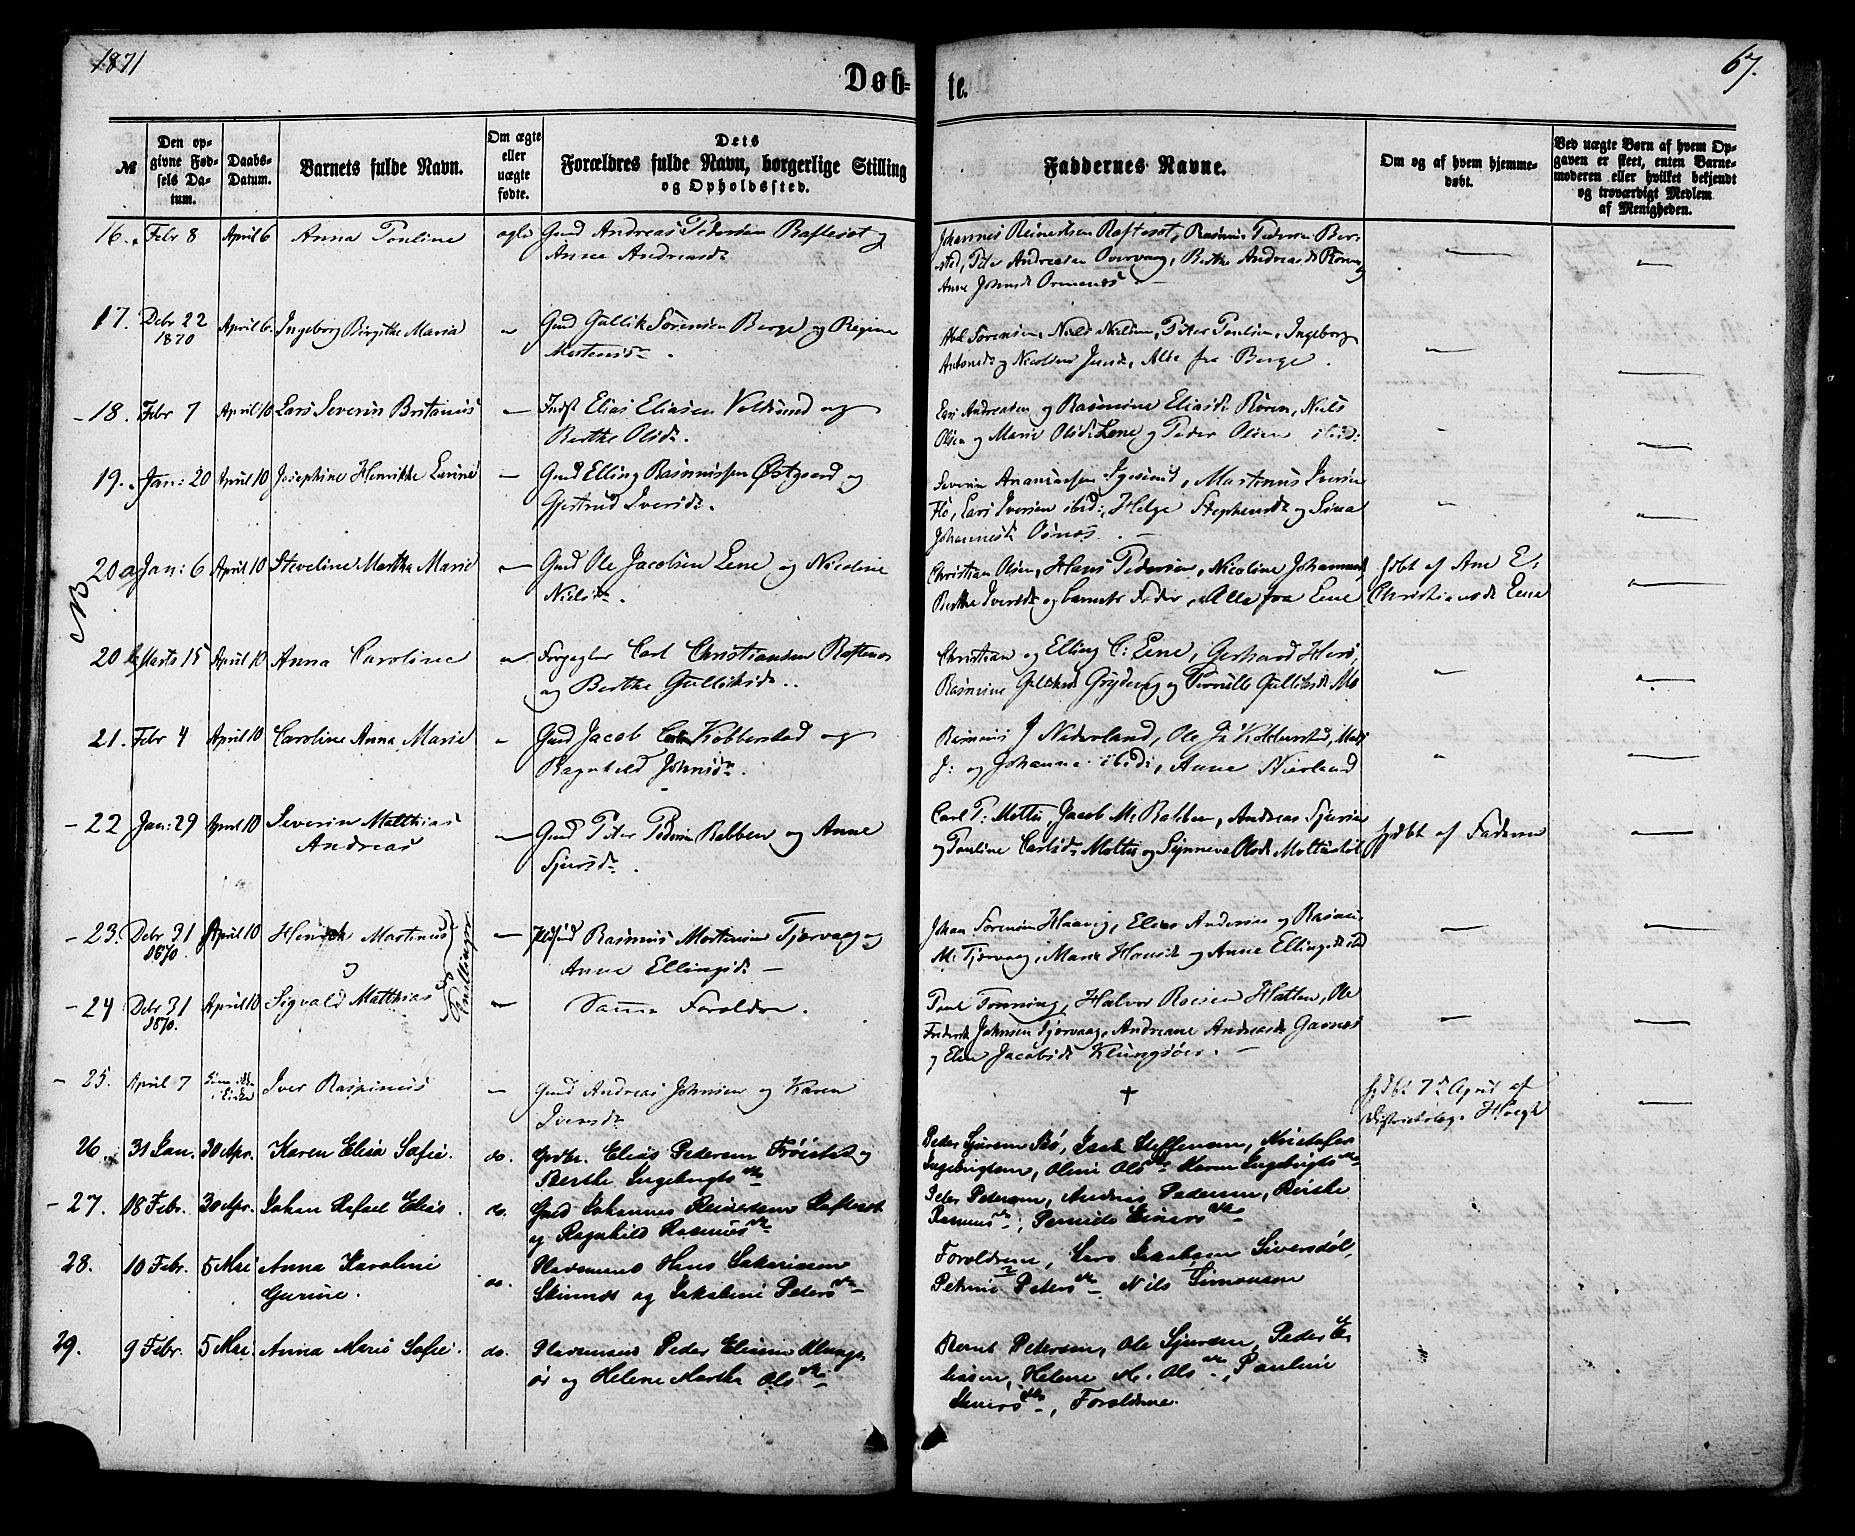 1871
Døb-
te.
67.
№
Den op-
givne Fød-
sels Da-
tum.
Daabs-
Datum.
Barnets fulde Navn.
Om ægte
eller
uægte
fødte.
Dets
Forældres fulde Navn, borgerlige Stilling
og Opholdssted.
Faddernes Navne.
Om og af hvem hjemme-
døbt.
Ved uægte Børn af hvem Op-
gaven er skeet, enten Barne-
moderen eller hvilket bekjendt
og troværdigt Medlem
af Menigheden.
16. Febr 8 April 6 Anna Pauline ægte Gmd Andreas Pedersen Raftesæt og
Anne Andreasd.
Johannes Reinertsen Raftesæt, Rasmus Pedersen
Peter Andreasen Overvaag, Berthe Andreasd.
Anne Johnsd.
17. Debr 22 April 6. Ingeborg Birgithe Maria " Gmd Gullik Sørensen Berge og Regine
1870
Mortensd.
Sørensen, Niels Nielsen, Peter Paulsen, Ingeborg
og Nicoline Jensd., Alle fra Berge.
18. Febr 7 April 10 Lars Severin Britanius — Indst Elias Eliasen Voldsund og
Berthe Olsd.
Lars Andreasen og Rasmine Eliasd. Røren, Niels
Olsen og Marie Olsd. Lene og Peder Olsen ibid:
19. Jan: 20 April 10 Josephine Henrikke Larine — Gmd Elling Rasmussen Østgaard og
Gjertrud Iversd.
Severin Ananiassen Igesund, Martinus Iversen
Flø, Lars Iversen ibid:, Helge Stephensd. og Sina
Johannesd. Osnæs.
NB
20a Jan: 6 April 10 Steveline Martha Marie — Gmd Ole Jacobsen Lene og Nicoline
Nielsd.
Christian Olsen, Hans Pedersen, Nicoline Johannesd,
Berthe Iversd. og barnets Fader, Alle fra Lene
hjdbt af Ane E.
Christiansd. Lene
20 b Marts 15 April 10 Anna Caroline " Forpagter Carl Christiansen Raftenes
og Berthe Gulliksd.
Christian og Elling C: Lene, Gerhard
Rasmine og Pernille Gulliksd. Mo
21. Febr 4 April 10 Caroline Anna Marie " Gmd Jacob Kobberstad og
Ragnhild Johnsd.
Rasmus J Nederland, Ole Kobberstad,
J: og Johanne ibid:, Anne
22 Jan: 29 April 10 Severin Matthias
Andreas
— Gmd Peter Pedersen Rabben og Anne
Sjursd.
Carl P: Moltu, Jacob M: Rabben, Andreas
og Pauline Carlsd. Moltu og Synneva Olsd. Moltustøl
hjdbt af Faderen
23. Debr 31 April 10 Martinus
1870.
og
Tvillinger
— Rasmus Mortensen Tjørvaag og
Anne Ellingsd.
Johan Sørensen Haavig, Elias Andersen og
M: Tjørvaag, Marie og Anne Ellingsd. ibid
24 Debr 31 April 10 Sigvald Matthias — Samme Forældre.
1870.
Paul Tonning, Halvor Hatlen, Ole
Frederik Johnsen Tjørvaag, Andreane Andreasd. Gavnæs
og Eline Jacobsd. Klungsøer.
25. April 7 Iver Raspinus — Gmd Andreas Johnsen og Karen
Iversd.
†
hjdbt 7d. April af
Districtslæge Hoegh
26. 31 Jan. 30 Apr. Karen Elisa Sofie. do. Elias Pedersen Frøistad og
Berthe Ingebrigtsdr.
Peder Sjursen Bø, Isak Steffensen, Kristofer
Ingebrigtsen, Oline Olsdr. Karen Ingebrigtsdr.
27. 18 Febr. 30 Apr. Johan Rafael Elias. do. Gmd Johannes Reinertsen Raftesæt
og Ragnhild Rasmusdr.
Peter Petersen, Andreas Pedersen, Birthe
Rasmusdr., Pernille Einersdr.
28. 10 Febr. 5 Mai Anna Karoline
Gurine.
do. Pladsmand Hans Sakariassen
Skinnes og Jakobine Petersdr.
Forældrene, Lars Jakobsen Siversdøl,
Petrine Petersdr. Nils Simonsen
29. 9 Febr. 5 Mai. Anna Marie Sofie. do. Pladsmand Peder Eliassen Klungs-
ør og Helene Martha Olsdr.
Bernt Petersen, Ole Sjursen, Peder E-
liassen, Helene M. Olsdr., Pauline
Forældrene.